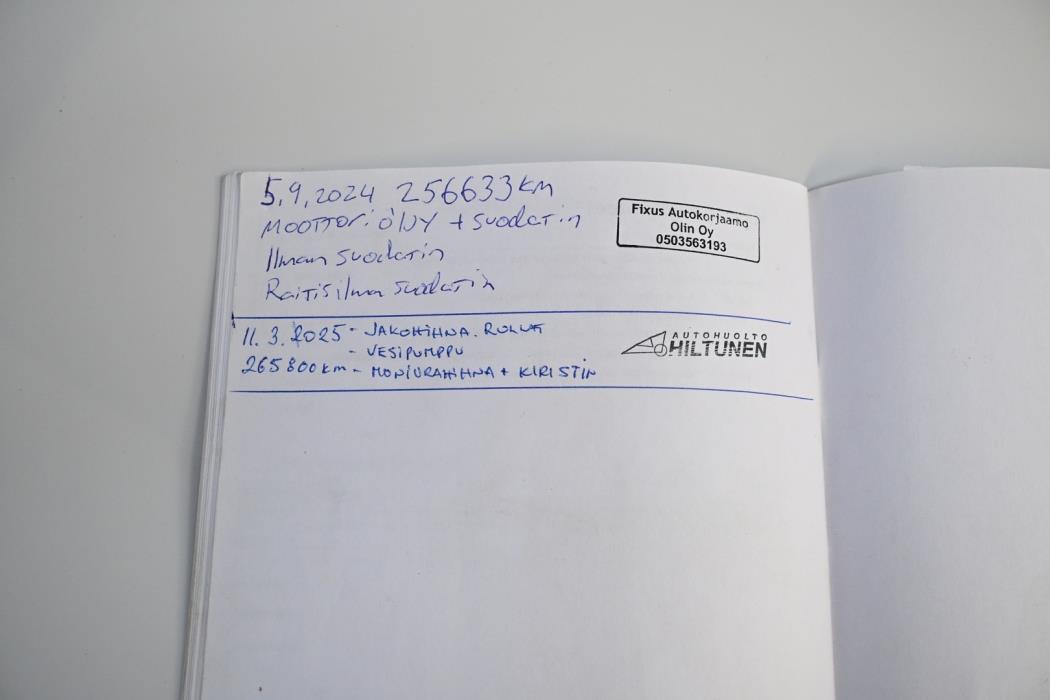 5.9.2024 256633 km
MOOTTORiÖLJY + SUODATIN
Ilman suodatin
Raitisilma suodatin
Fixus Autokorjaamo
Olin Oy
0503563193
11.3.2025 - JAKOHIHNA. RULLAT
- VESIPUMPPU
265800 km - MONIURAHIHNA + KIRISTIN
AUTOHUOLTO
HILTUNEN